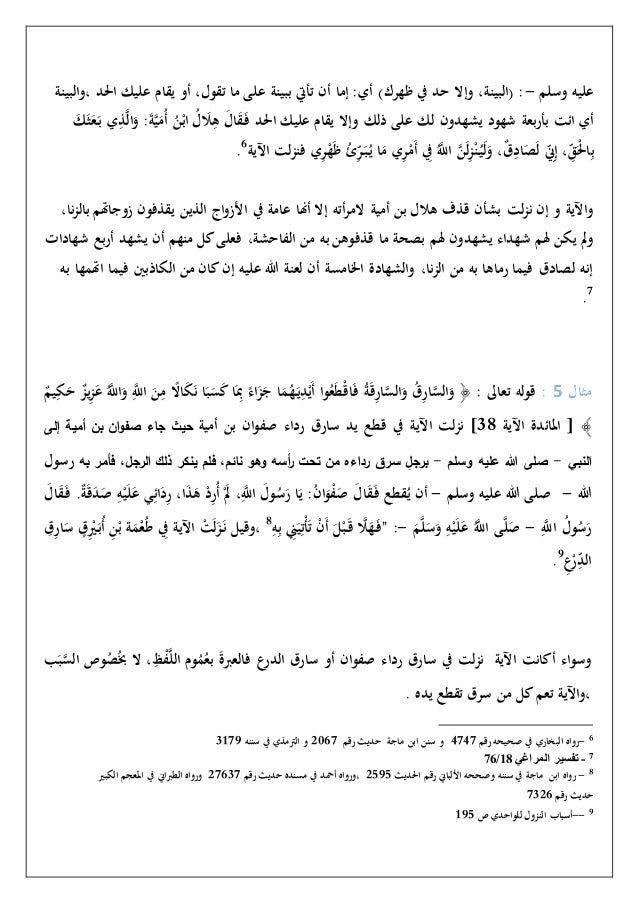 عليه وسلم – : (البينة، وإلا حد في ظهرك) أي: إما أن تأتي ببينة على ما تقول، أو يقام عليك الحد ،والبينة
أي ائت بأربعة شهود يشهدون لك على ذلك وإلا يقام عليك الحد فَقَالَ هِلاَلُ ابْنُ أُمَيَّةَ: وَالَّذِي بَعَثَكَ
بِالْحَقِّ، إِنِّي لَصَادِقٌ، وَلَيُنْزِلَنَّ اللَّهُ فِي أَمْرِي مَا يُبَرِّئُ ظَهْرِي فنزلت الآية6.
والآية و إن نزلت بشأن قذف هلال بن أمية لامرأته إلا أنها عامة في الأزواج الذين يقذفون زوجاتهم بالزنا،
ولم يكن لهم شهداء يشهدون لهم بصحة ما قذفوهن به من الفاحشة، فعلى كل منهم أن يشهد أربع شهادات
إنه لصادق فيما رماها به من الزنا، والشهادة الخامسة أن لعنة الله عليه إن كان من الكاذبين فيما اتهمها به
7.
مثال 5 : قوله تعالى : ﴿ وَالسَّارِقُ وَالسَّارِقَةُ فَاقْطَعُوا أَيْدِيَهُمَا جَزَاءً بِمَا كَسَبَا نَكَالًا مِنَ اللَّهِ وَاللَّهُ عَزِيزٌ حَكِيمٌ
﴾ [ المائدة الآية 38] نزلت الآية في قطع يد سارق رداء صفوان بن أمية حيث جاء صفوان بن أمية إلى
النبي – صلى الله عليه وسلم – برجل سرق رداءه من تحت رأسه وهو نائم، فلم ينكر ذلك الرجل، فأمر به رسول
الله – صلى الله عليه وسلم – أن يُقطع فَقَالَ صَفْوَانُ: يَا رَسُولَ اللَّهِ، لَمْ أُرِدْ هَذَا، رِدَائِي عَلَيْهِ صَدَقَةٌ. فَقَالَ
رَسُولُ اللَّهِ – صَلَّى اللَّهُ عَلَيْهِ وَسَلَّمَ –: "فَهَلَّا قَبْلَ أَنْ تَأْتِيَنِي بِهِ8 ،وقيل نَزَلَتْ الآية فِي طُعْمَة بْنِ أُبَيْرِقٍ سَارِقِ
الدِّرْعِ9.
وسواء أكانت الآية نزلت في سارق رداء صفوان أو سارق الدرع فالعبرةَ بعُمُوم اللَّفْظِ، لا بخُصُوص السَّبَب
،والآية تعم كل من سرق تقطع يده .
6 –رواه البخاري في صحيحه رقم 4747 و سنن ابن ماجة حديث رقم 2067 و الترمذي في سننه 3179
7 - تفسير المراغي 76/18
8 – رواه ابن ماجة في سننه وصححه الألباني رقم الحديث 2595 ،ورواه أحمد في مسنده حديث رقم 27637 ورواه الطبراني في المعجم الكبير
حديث رقم 7326
9 —أسباب النزول للواحدي ص 195